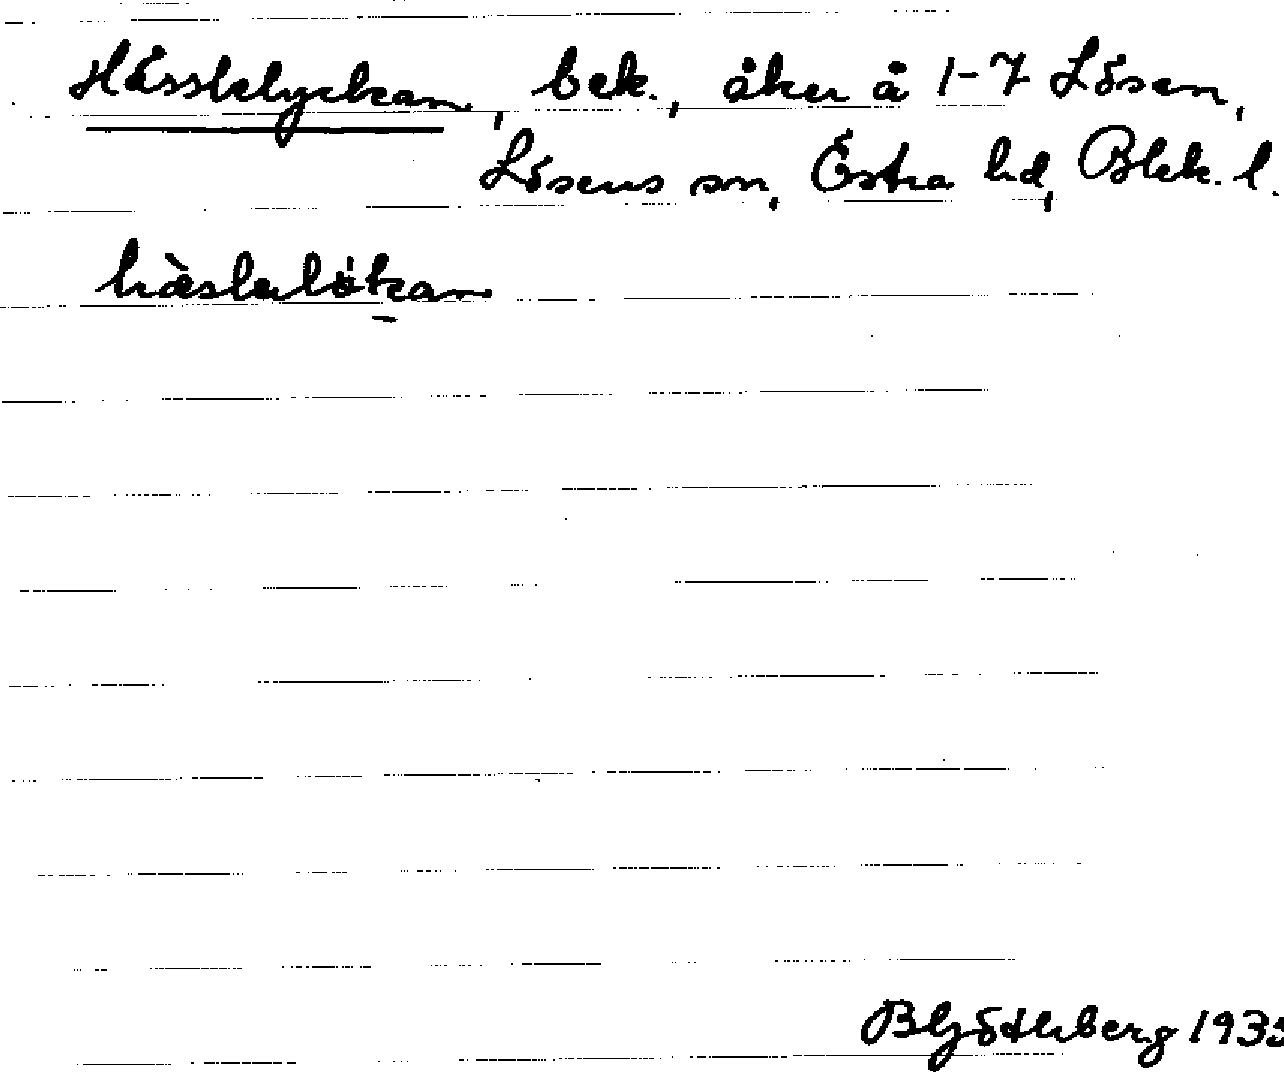 Hässlelyckan, bek., åker å 1-7 Lösen,
Lösens sn, Östra hd, Blek. l.
hàslelökan
BGötlberg